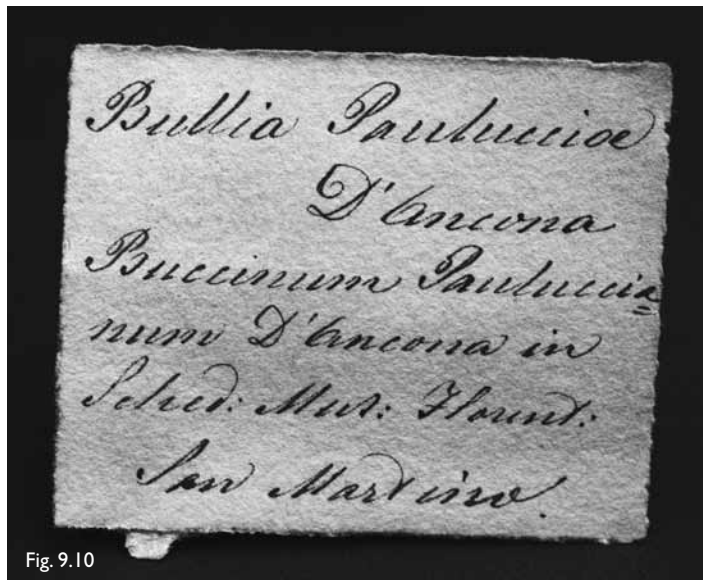 Bullia Paulucciæ
D'Ancona
Buccinum Pauluccia=
num D'Ancona in
Sched: Mus: Florent:
San Martino.
Fig. 9.10